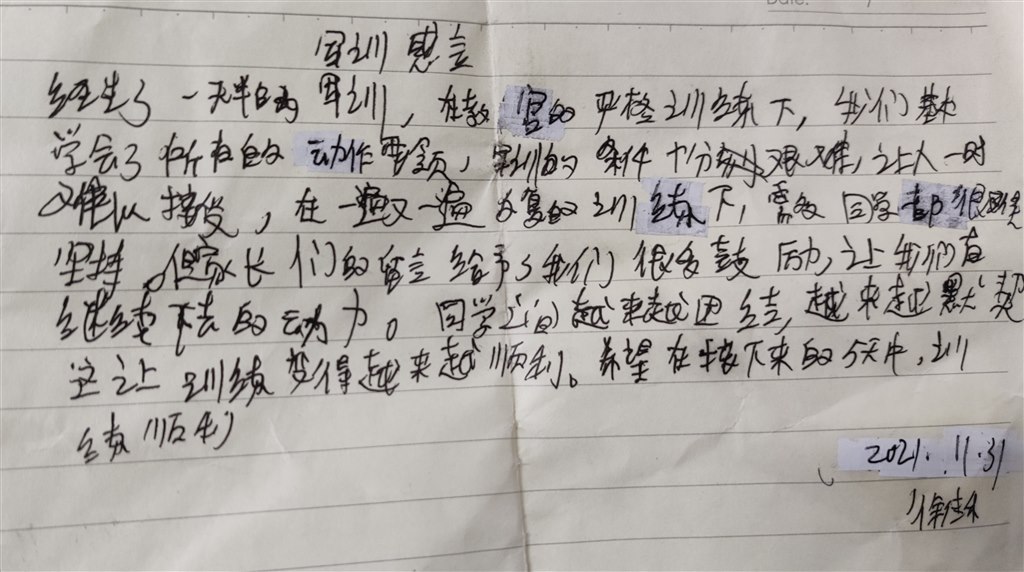 Date:
军训感言
经生了一天半的军训，在教官的严格训练下，我们基本
学会了所有的动作要领，军训的条件十分艰难，让人一时
难以接受，在一遍又一遍反复的训练下，需要同学都很
坚持。但家长们的留言给予了我们很多鼓励，让我们有
继续下去的动力。同学们越来越团结，越来越默契
这让训练变得越来越顺利。希望在接下来的5天中，训
练顺利
2021.11.31